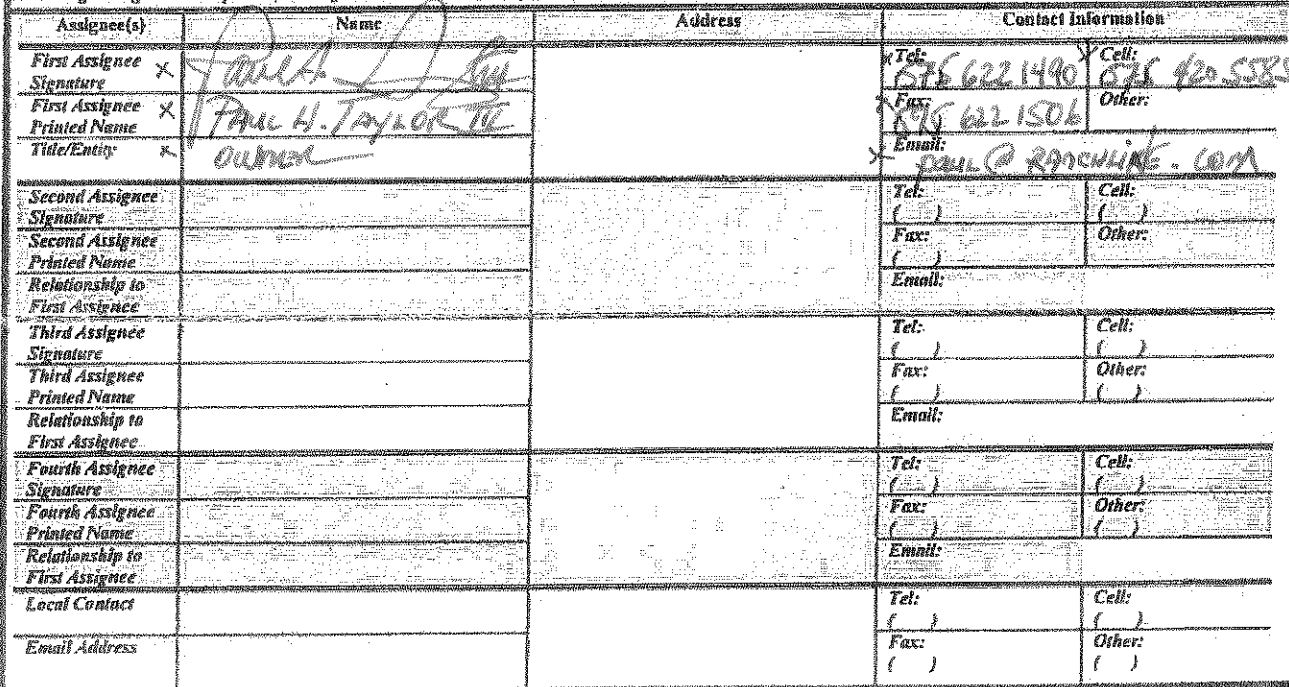 Assignee(s) Name Address Contact Information
First Assignee Signature X Tel: 575 622 1490 X Cell: 575 420 5585
First Assignee Printed Name X PAUL H. TAYLOR III Fax: 575 622 1506 Other:
Title/Entity: X OWNER X Email: PAUL@RANCHLINE.COM
Second Assignee Signature Tel: ( ) Cell: ( )
Second Assignee Printed Name Fax: ( ) Other: ( )
Relationship to First Assignee Email:
Third Assignee Signature Tel: ( ) Cell: ( )
Third Assignee Printed Name Fax: ( ) Other: ( )
Relationship to First Assignee Email:
Fourth Assignee Signature Tel: ( ) Cell: ( )
Fourth Assignee Printed Name Fax: ( ) Other: ( )
Relationship to First Assignee Email:
Local Contact Tel: ( ) Cell: ( )
Email Address Fax: ( ) Other: ( )